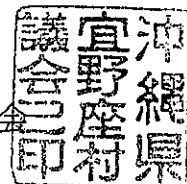 沖縄県
宜野座村
議会之印
会